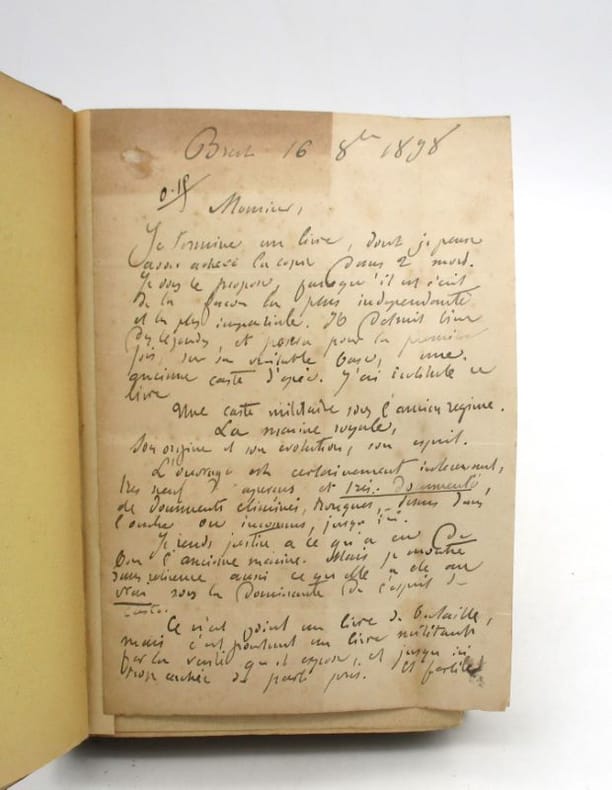 Brest 16 8bre 1898
Monsieur,
Je termine un livre, dont je pense
avoir achevé la copie dans 2 mois.
Je vous le propose, parcequ'il est écrit
de la façon la plus indépendante
et la plus impartiale. Il détruit bien
des légendes, et posera pour la première
fois, sur sa véritable base, une
ancienne caste d'épée. J'ai intitulé ce
livre
Une caste militaire sous l'ancien régime.
La marine royale,
son origine et son évolution, son esprit.
L'ouvrage est certainement intéressant,
très neuf d'aperçus et très documenté,
de documents éliminés, tronqués, tenus dans
l'ombre ou inconnus, jusqu'ici.
Je rends justice à ce qu'a eu de
bon l'ancienne marine. Mais je montre
sans réticence aussi ce qu'elle a été au
vrai sous la dominante de l'esprit de
caste.
Ce n'est point un livre de bataille,
mais c'est pourtant un livre militant
par la vérité qu'il expose, et jusqu'ici
trop cachée de parti pris. Il